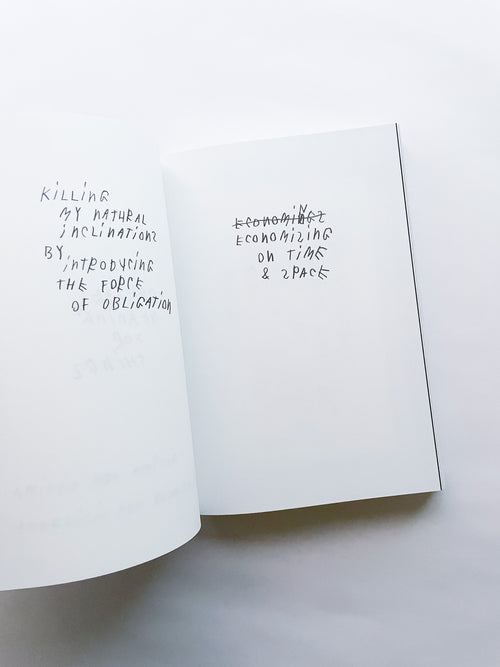 KiLLinG
MY NATURAL
iNCLiNATiONS
BY iNTRODUCiNG
THE FORCE
OF OBLiGATiON
ECONOMiSING
ON TiME
& SPACE